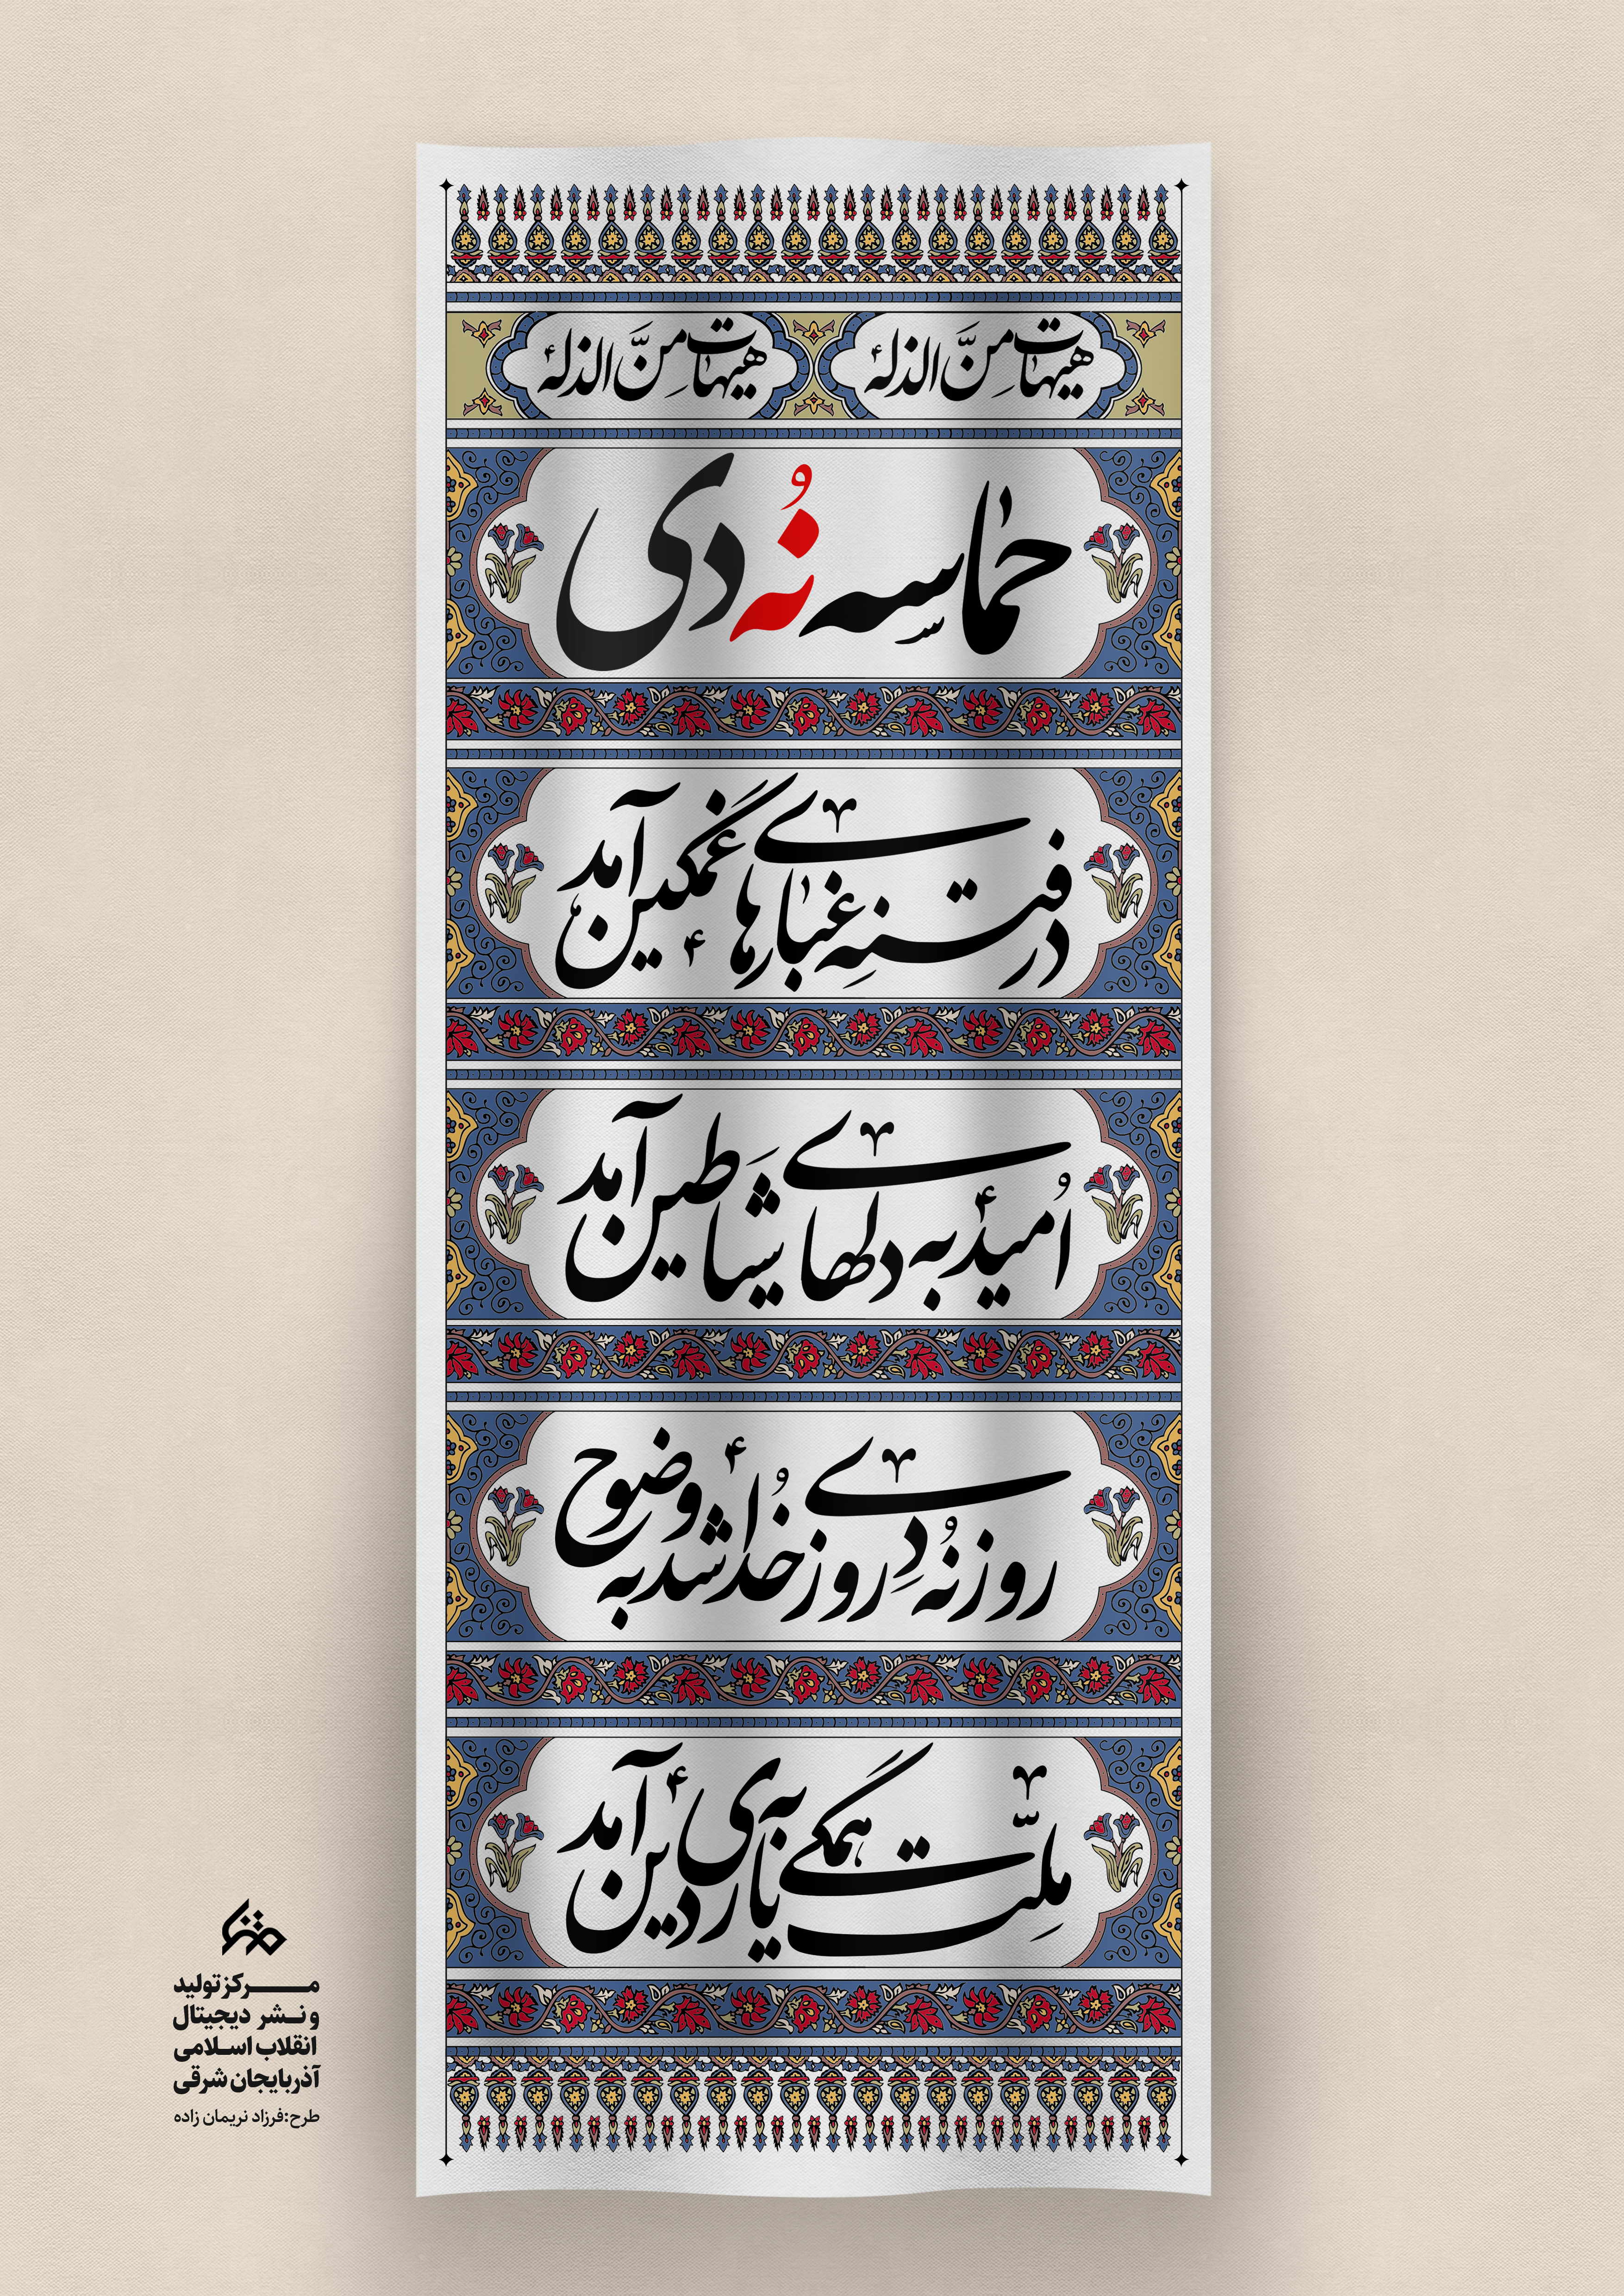 هیهات مِنَّ الذله هیهات مِنَّ الذله
حماسه نُه دی
در فتنهِ غبارهای غمگین آمد
اُمید به دلهای شیاطین آمد
روز نُه دِی روز خُدا شد به وضوح
ملِّت همگی به یاری دین آمد
متنا
مرکز تولید
و نشر دیجیتال
انقلاب اسلامی
آذربایجان شرقی
طرح:فرزاد نریمان زاده